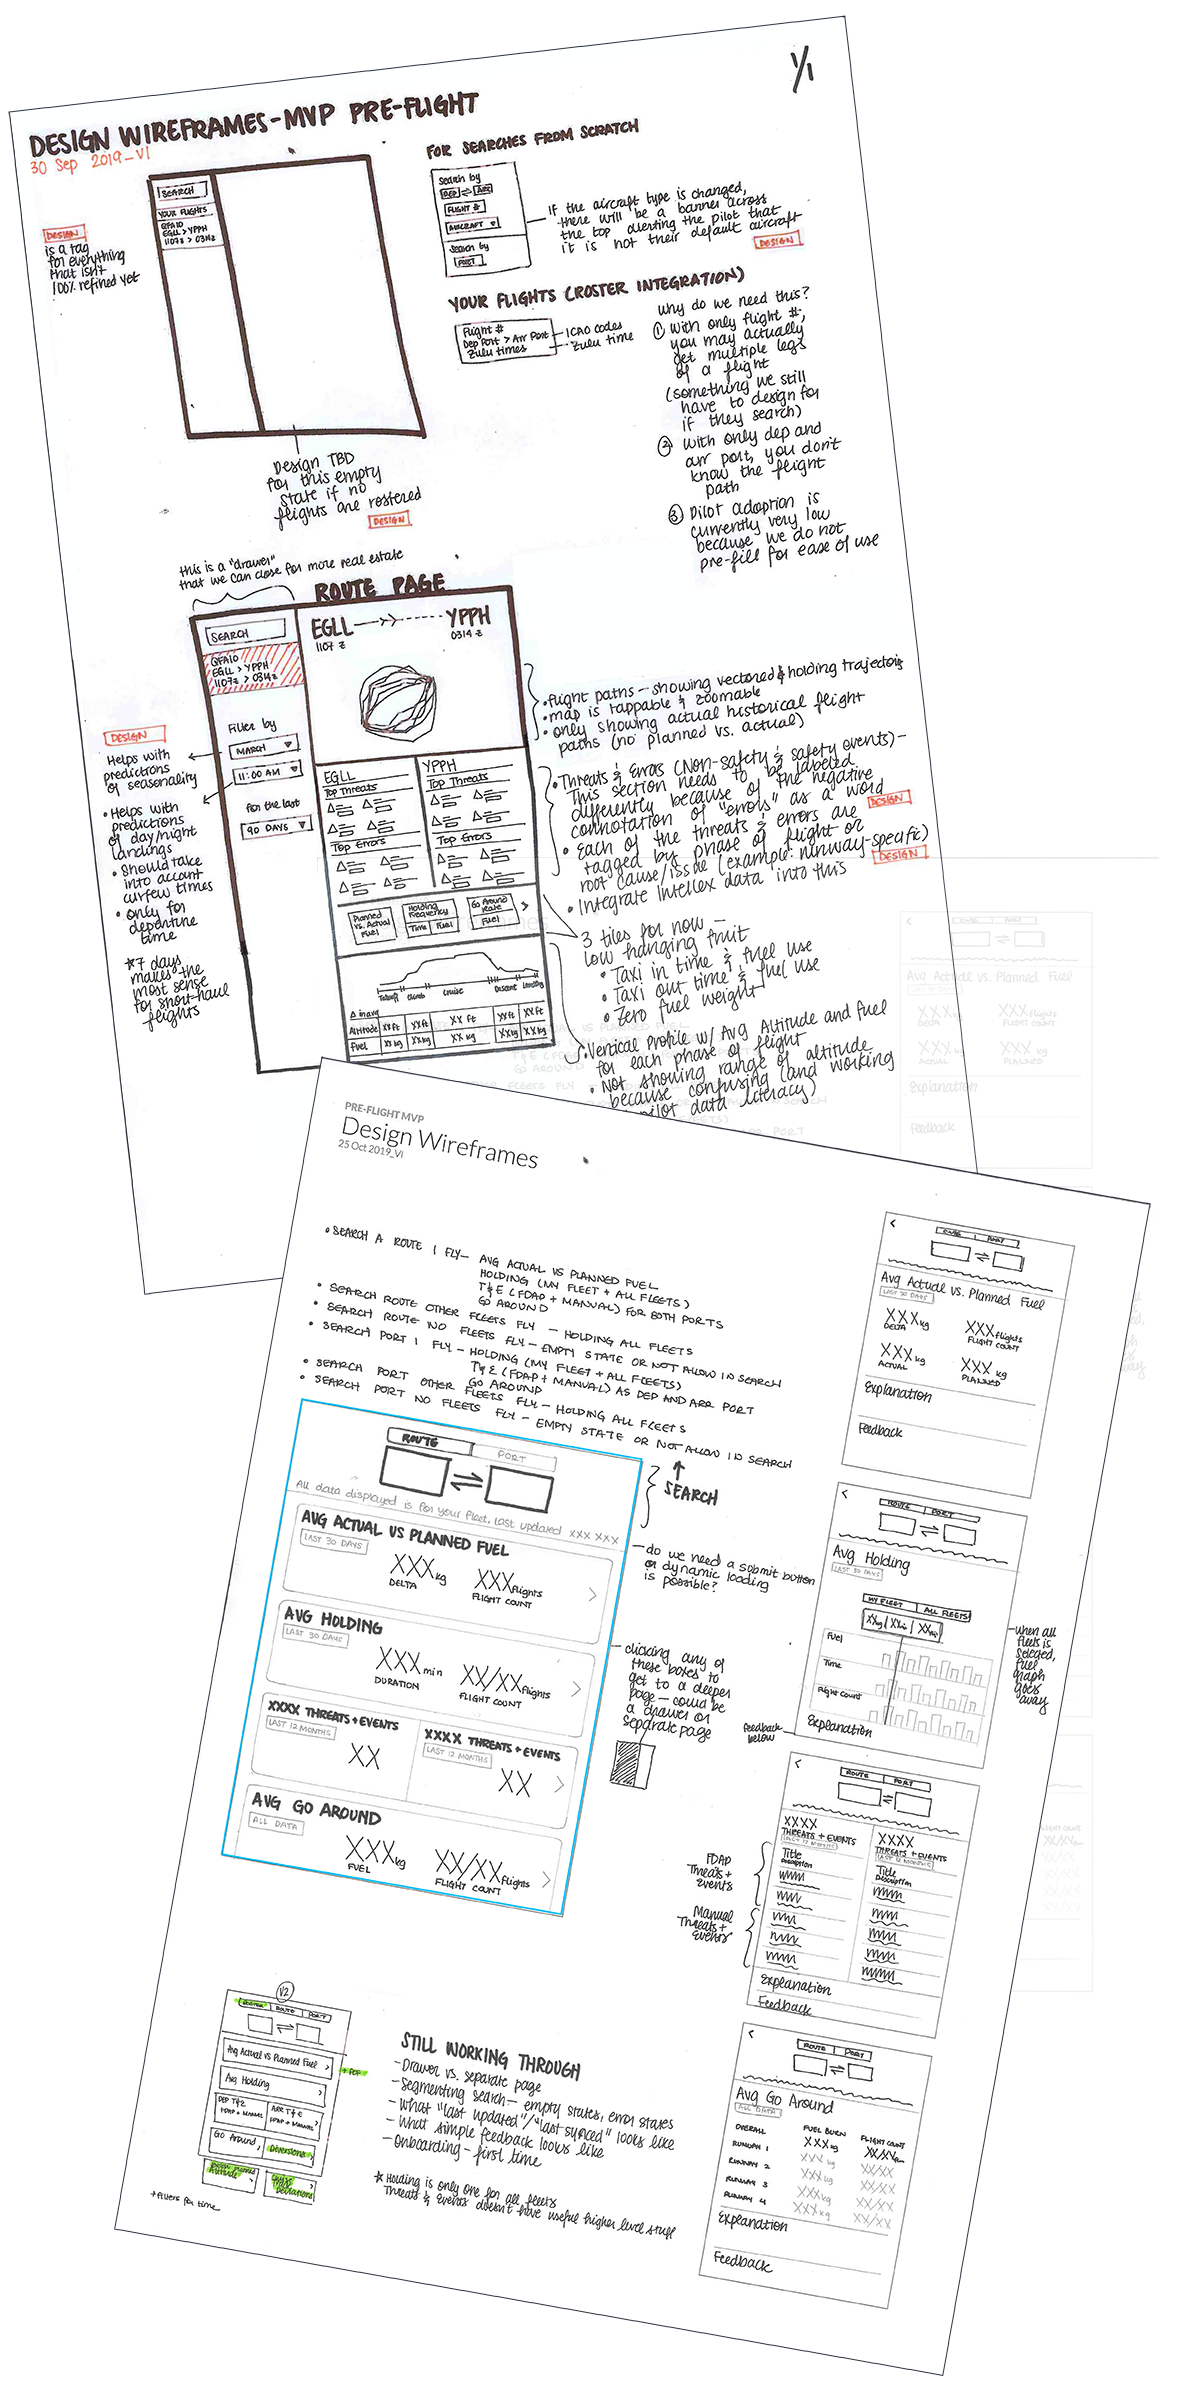 1/1
DESIGN WIREFRAMES-MVP PRE-FLIGHT
30 Sep 2019_V1
DESIGN
is a tag
for everything
that isn't
100% refined yet
SEARCH
YOUR FLIGHTS
QFA10
EGLL > YPPH
1107z > 0314z
Design TBD
for this empty
state if no
flights are rostered
DESIGN
FOR SEARCHES FROM SCRATCH
Search by
DEP ⇌ ARR
FLIGHT #
AIRCRAFT ▼
Search by
PORT
If the aircraft type is changed,
there will be a banner across
the top alerting the pilot that
it is not their default aircraft
DESIGN
YOUR FLIGHTS (ROSTER INTEGRATION)
Flight #
Dep Port > Arr Port
Zulu times
ICAO codes
Zulu time
Why do we need this?
① With only flight #,
you may actually
get multiple legs
of a flight
(something we still
have to design for
if they search)
② With only dep and
arr port, you don't
know the flight
path
③ Pilot adoption is
currently very low
because we do not
pre-fill for ease of use
this is a "drawer"
that we can close for more real estate
ROUTE PAGE
SEARCH
QFA10
EGLL > YPPH
1107z > 0314z
EGLL
1107 z
YPPH
0314 z
Filter by
MARCH ▼
11:00 AM ▼
for the last
90 DAYS ▼
DESIGN
Helps with
predictions
of seasonality
• Helps with
predictions
of day/night
landings
• Should take
into account
curfew times
• only for
departure
time
*7 days
makes the
most sense
for short-haul
flights
EGLL
Top Threats
Top Errors
YPPH
Top Threats
Top Errors
Planned
vs. Actual
Fuel
Holding
Frequency
Time
Fuel
Go Around
Rate
Fuel
Takeoff
Climb
Cruise
Descent
Landing
Δ in avg
Altitude XX ft XX ft XX ft XX ft XX ft
Fuel XX kg XX kg XX kg XX kg XX kg
• flight paths – showing vectored & holding trajectories
• map is tappable & zoomable
• only showing actual historical flight
paths (no planned vs. actual)
• Threats & Errors (Non-safety & safety events) –
This section needs to be labeled
differently because of the negative
connotation of "errors" as a word
DESIGN
• Each of the threats & errors are
tagged by phase of flight or
root cause/issue (example: runway-specific)
DESIGN
• Integrate Intellex data into this
3 tiles for now –
low hanging fruit
• Taxi in time & fuel use
• Taxi out time & fuel use
• Zero fuel weight
• Vertical Profile w/ Avg Altitude and fuel
for each phase of flight
• Not showing range of altitude
because confusing (and working
pilot data literacy)
PRE-FLIGHT MVP
Design Wireframes
25 Oct 2019_V1
• SEARCH A ROUTE I FLY – AVG ACTUAL VS PLANNED FUEL
HOLDING (MY FLEET + ALL FLEETS)
T&E (FDAP + MANUAL) FOR BOTH PORTS
GO AROUND
• SEARCH ROUTE OTHER FLEETS FLY – HOLDING ALL FLEETS
• SEARCH ROUTE NO FLEETS FLY – EMPTY STATE OR NOT ALLOW IN SEARCH
• SEARCH PORT I FLY – HOLDING (MY FLEET + ALL FLEETS)
T&E (FDAP + MANUAL) AS DEP AND ARR PORT
GO AROUND
• SEARCH PORT OTHER FLEETS FLY – HOLDING ALL FLEETS
• SEARCH PORT NO FLEETS FLY – EMPTY STATE OR NOT ALLOW IN SEARCH
SEARCH
ROUTE
PORT
All data displayed is for your fleet. Last updated XXX XXX
AVG ACTUAL VS PLANNED FUEL
LAST 30 DAYS
XXX kg
DELTA
XXX flights
FLIGHT COUNT
AVG HOLDING
LAST 30 DAYS
XXX min
DURATION
XX/XX flights
FLIGHT COUNT
XXXX THREATS + EVENTS
LAST 12 MONTHS
XX
XXXX THREATS + EVENTS
LAST 12 MONTHS
XX
AVG GO AROUND
ALL DATA
XXX kg
FUEL
XX/XX flights
FLIGHT COUNT
– do we need a submit button
or dynamic loading
is possible?
– clicking any of
these boxes to
get to a deeper
page – could be
a drawer or
separate page
ROUTE
PORT
Avg Actual vs. Planned Fuel
LAST 30 DAYS
XXX kg
DELTA
XXX flights
FLIGHT COUNT
XXX kg
ACTUAL
XXX kg
PLANNED
Explanation
Feedback
ROUTE
PORT
Avg Holding
LAST 30 DAYS
MY FLEET
ALL FLEETS
Fuel
Time
Flight Count
Explanation
Feedback
below
– when all
fleets is
selected,
fuel
graph
goes
away
ROUTE
PORT
XXXX
THREATS + EVENTS
LAST 12 MONTHS
Title
Description
XXXX
THREATS + EVENTS
LAST 12 MONTHS
Title
Description
Explanation
Feedback
FDAP
Threats +
Events
Manual
Threats +
Events
ROUTE
PORT
Avg Go Around
ALL DATA
OVERALL
FUEL BURN
XXX kg
FLIGHT COUNT
RUNWAY 1 XXX kg XX/XX
RUNWAY 2 XXX kg XX/XX
RUNWAY 3 XXX kg XX/XX
RUNWAY 4 XXX kg XX/XX
Explanation
Feedback
V2
ROSTER
ROUTE
PORT
Avg Actual vs Planned Fuel
+ PDF
Avg Holding
DEP T&E
FDAP + MANUAL
ARR T&E
FDAP + MANUAL
Go Around
Diversions
Altitude
Deviations
+ filters for time
STILL WORKING THROUGH
– Drawer vs. separate page
– Segmenting search – empty states, error states
– What "last updated"/"last synced" looks like
– What simple feedback looks like
– Onboarding – first time
* Holding is only one for all fleets
Threats & Events doesn't have useful higher level stuff